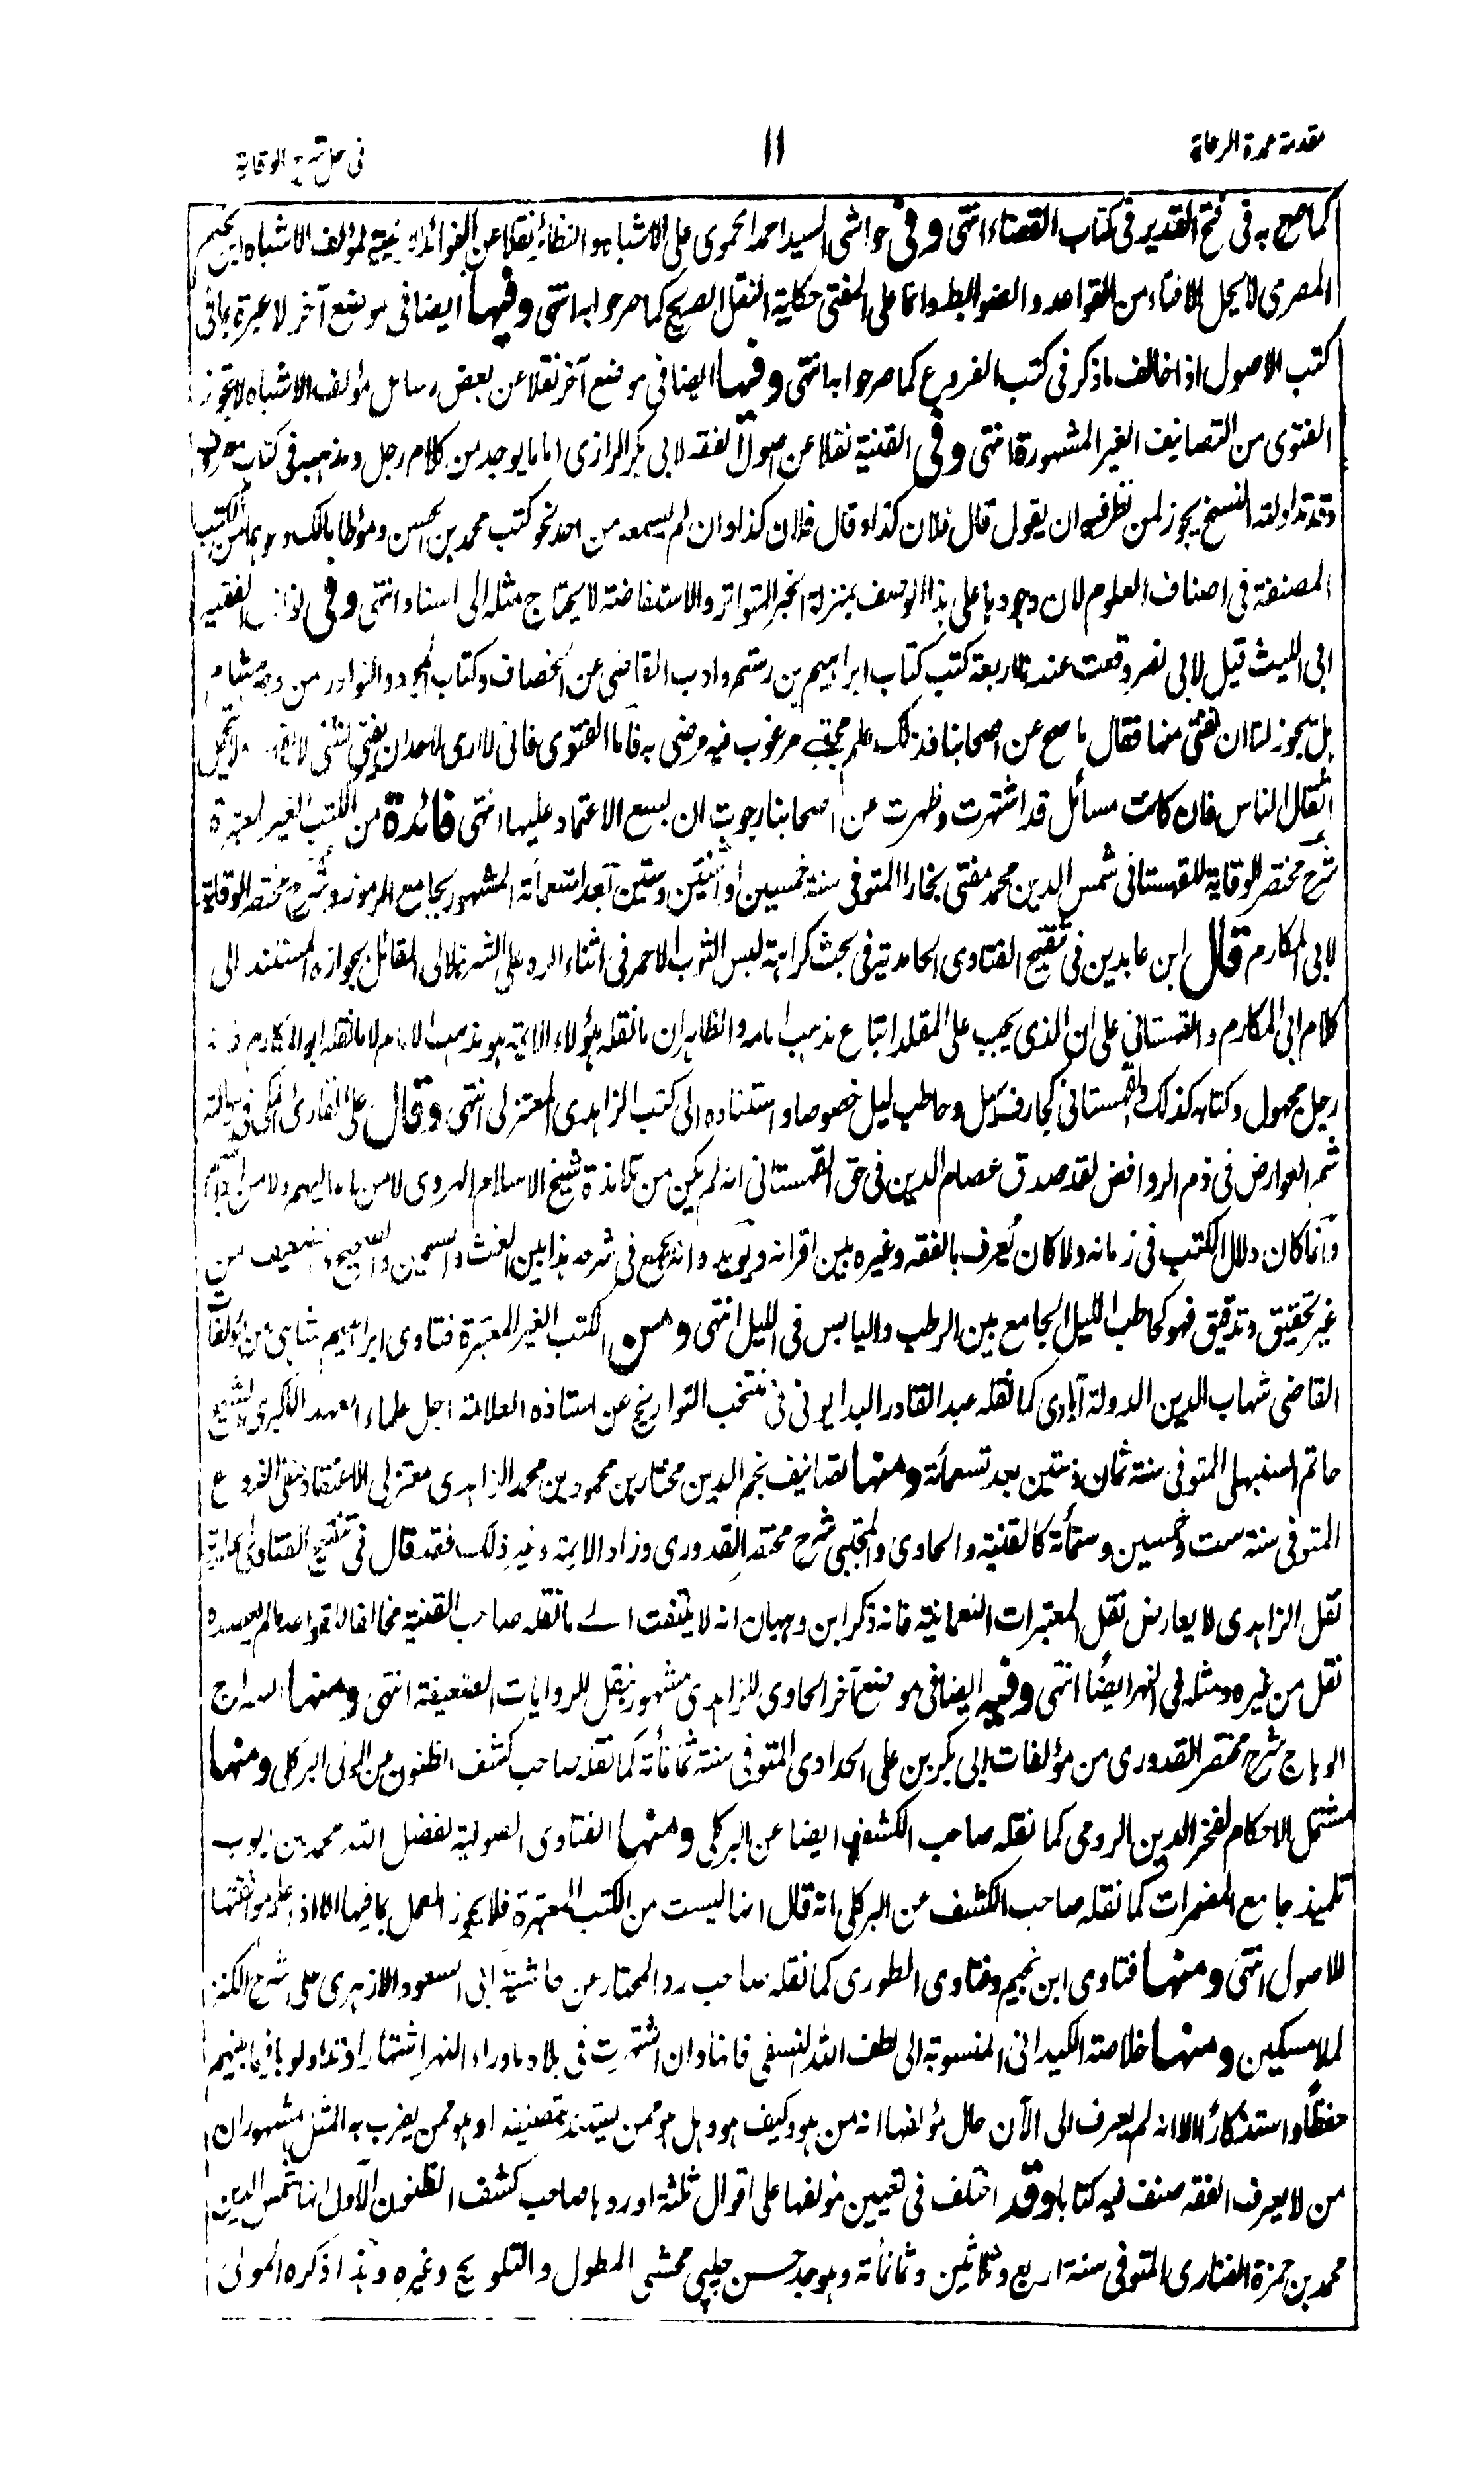 مقدمة عمدة الرعاية
١١
فى حل شرح الوقاية
كما صرح به فى فتح القدير فى كتاب القضاء انتهى وفى حواشى السيد احمد الحموى على الاشباه والنظائر نقلا عن الفوائد الزينية لمؤلف الاشباه ابن نجيم
المصرى لا يحل الافتاء من القواعد والضوابط وانما على المفتى حكاية النقل الصريح كما صرحوا به انتهى وفيها ايضا فى موضع آخر لا عبرة بما فى
كتب الاصول اذا خالف ما ذكر فى كتب الفروع كما صرحوا به انتهى وفيها ايضا فى موضع آخر نقلا عن بعض رسائل مؤلف الاشباه لا تجوز
الفتوى من التصانيف الغير المشهورة انتهى وفى القنية نقلا عن اصول الفقه لابى بكر الرازى اما ما يوجد من كلام رجل ومذهبه فى كتاب معروف
وقد تداولته النسخ يجوز لمن نظر فيه ان يقول قال فلان كذا وقال فلان كذا وان لم يسمعه من احد نحو كتب محمد بن الحسن ومؤطا مالك ونحوهما من الكتب
المصنفة فى اصناف العلوم لان وجودها على هذا الوصف بمنزلة الخبر المتواتر والاستفاضة لا يحتاج مثله الى اسناد انتهى وفى نوازل الفقيه
ابى الليث قيل لابى نصر وقعت عندنا اربعة كتب كتاب ابراهيم بن رستم وادب القاضى عن الخصاف وكتاب المجرد والنوادر من وجه هشام
هل يجوز لنا ان نفتى منها فقال ما صح عن اصحابنا فذلك علم محبب مرغوب فيه مرضى به فاما الفتوى فانى لا ارى لاحد ان يفتى بشئ لا يفهمه ولا يتحمل
اثقال الناس فان كانت مسائل قد اشتهرت وظهرت عن اصحابنا رجوت ان يسع الاعتماد عليها انتهى فائدة من الكتب الغير المعتبرة
شرح مختصر الوقاية للقهستانى شمس الدين محمد مفتى بخارا المتوفى سنة خمسين او اثنتين وستين بعد تسعمائة المشهور بجامع الرموز وشرح مختصر الوقاية
لابى المكارم قال ابن عابدين فى تنقيح الفتاوى الحامدية فى بحث كراهة لبس الثوب الاحمر فى اثناء الرد على الشرنبلالى القائل بجوازه المستند الى
كلام ابى المكارم والقهستانى على ان الذى يجب على المقلد اتباع مذهب امامه والظاهر ان ما نقله هؤلاء الائمة هو مذهب الامام لا ما نقله ابو المكارم فانه
رجل مجهول وكتابه كذلك والقهستانى كجارف سيل وحاطب ليل خصوصا واستناده الى كتب الزاهدى المعتزلى انتهى وقال على القارى المكى فى رسالته
شم العوارض فى ذم الروافض لقد صدق عصام الدين فى حق القهستانى انه لم يكن من تلامذة شيخ الاسلام الهروى لا من اعاليهم ولا من ادانيهم
وانما كان دلال الكتب فى زمانه ولا كان يعرف بالفقه وغيره بين اقرانه ويؤيده انه يجمع فى شرحه هذا بين الغث والسمين والصحيح والضعيف من
غير تحقيق وتدقيق فهو كحاطب الليل الجامع بين الرطب واليابس فى الليل انتهى ومن الكتب الغير المعتبرة فتاوى ابراهيم شاهى من مؤلفات
القاضى شهاب الدين الدولة آبادى كما نقله عبد القادر البدايونى فى منتخب التواريخ عن استاذه العلامة اجل علماء العهد الاكبرى الشيخ
حاتم السنبهلى المتوفى سنة ثمان وستين بعد تسعمائة ومنها تصانيف نجم الدين مختار بن محمود بن محمد الزاهدى معتزلى الاعتقاد حنفى الفروع
المتوفى سنة ست وخمسين وستمائة كالقنية والحاوى والمجتبى شرح مختصر القدورى وزاد الايمة وغير ذلك فقد قال فى تنقيح الفتاوى الحامدية
نقل الزاهدى لا يعارض نقل المعتبرات النعمانية فانه ذكر ابن وهبان انه لا يلتفت الى ما نقله صاحب القنية مخالفا للقواعد ما لم يعضده
نقل من غيره ومثله فى النهر ايضًا انتهى وفيه ايضا فى موضع آخر الحاوى للزاهدى مشهور بنقل الروايات الضعيفة انتهى ومنها السراج
الوهاج شرح مختصر القدورى من مؤلفات ابى بكر بن على الحدادى المتوفى سنة ثمانمائة كما نقله صاحب كشف الظنون عن المولى البركلى ومنها
مشتمل الاحكام لفخر الدين الرومى كما نقله صاحب الكشف ايضا عن البركلى ومنها الفتاوى الصوفية لفضل الله محمد بن ايوب
تلميذ جامع المضمرات كما نقله صاحب الكشف عن البركلى انه قال انها ليست من الكتب المعتبرة فلا يجوز العمل بما فيها الا اذا علم موافقتها
للاصول انتهى ومنها فتاوى ابن نجيم وفتاوى الطورى كما نقله صاحب رد المحتار عن حاشية ابى السعود الازهرى على شرح الكنز
لملا مسكين ومنها خلاصة الكيدانى المنسوبة الى لطف الله النسفى فانها وان اشتهرت فى بلاد ماوراء النهر اشتهارا وتداولوها فيما بينهم
حفظًا واستذكارًا الا انه لم يعرف الى الآن حال مؤلفها انه من هو وكيف هو وهل هو ممن يستند بتصنيفه او هو ممن يضرب به المثل مشهور ان
من لا يعرف الفقه صنف فيه كتابا وقد اختلف فى تعيين مؤلفها على اقوال ثلثة اوردها صاحب كشف الظنون الاول انها لشمس الدين
محمد بن حمزة الفنارى المتوفى سنة اربع وثلاثين وثمانمائة وهو جد حسن چلپى محشى المطول والتلويح وغيره وهذا ذكره المولى